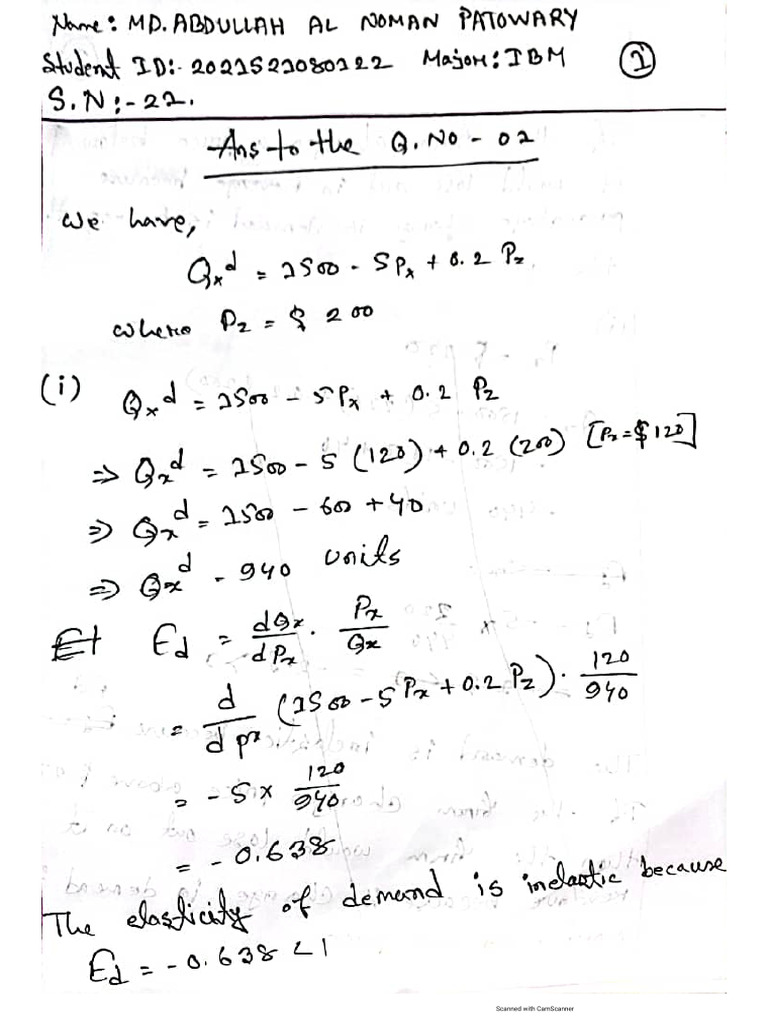 Name: MD. ABDULLAH AL NOMAN PATOWARY
Student ID:- 2021521080122 Major: IBM
S.N:-22.
1
Ans to the Q. No - 02
We have,
Qxᵈ = 1500 - 5Px + 0.2 Pz
where Pz = $ 200
(i) Qxᵈ = 1500 - 5Px + 0.2 Pz
⇒ Qxᵈ = 1500 - 5 (120) + 0.2 (200) [Px = $120]
⇒ Qxᵈ = 1500 - 600 + 40
⇒ Qxᵈ - 940 units
Ed = dQx/dPx · Px/Qx
= d/dPx (1500 - 5Px + 0.2 Pz) · 120/940
= - 5 x 120/940
= - 0.638
The elasticity of demand is inelastic because
Ed = - 0.638 < 1
Scanned with CamScanner